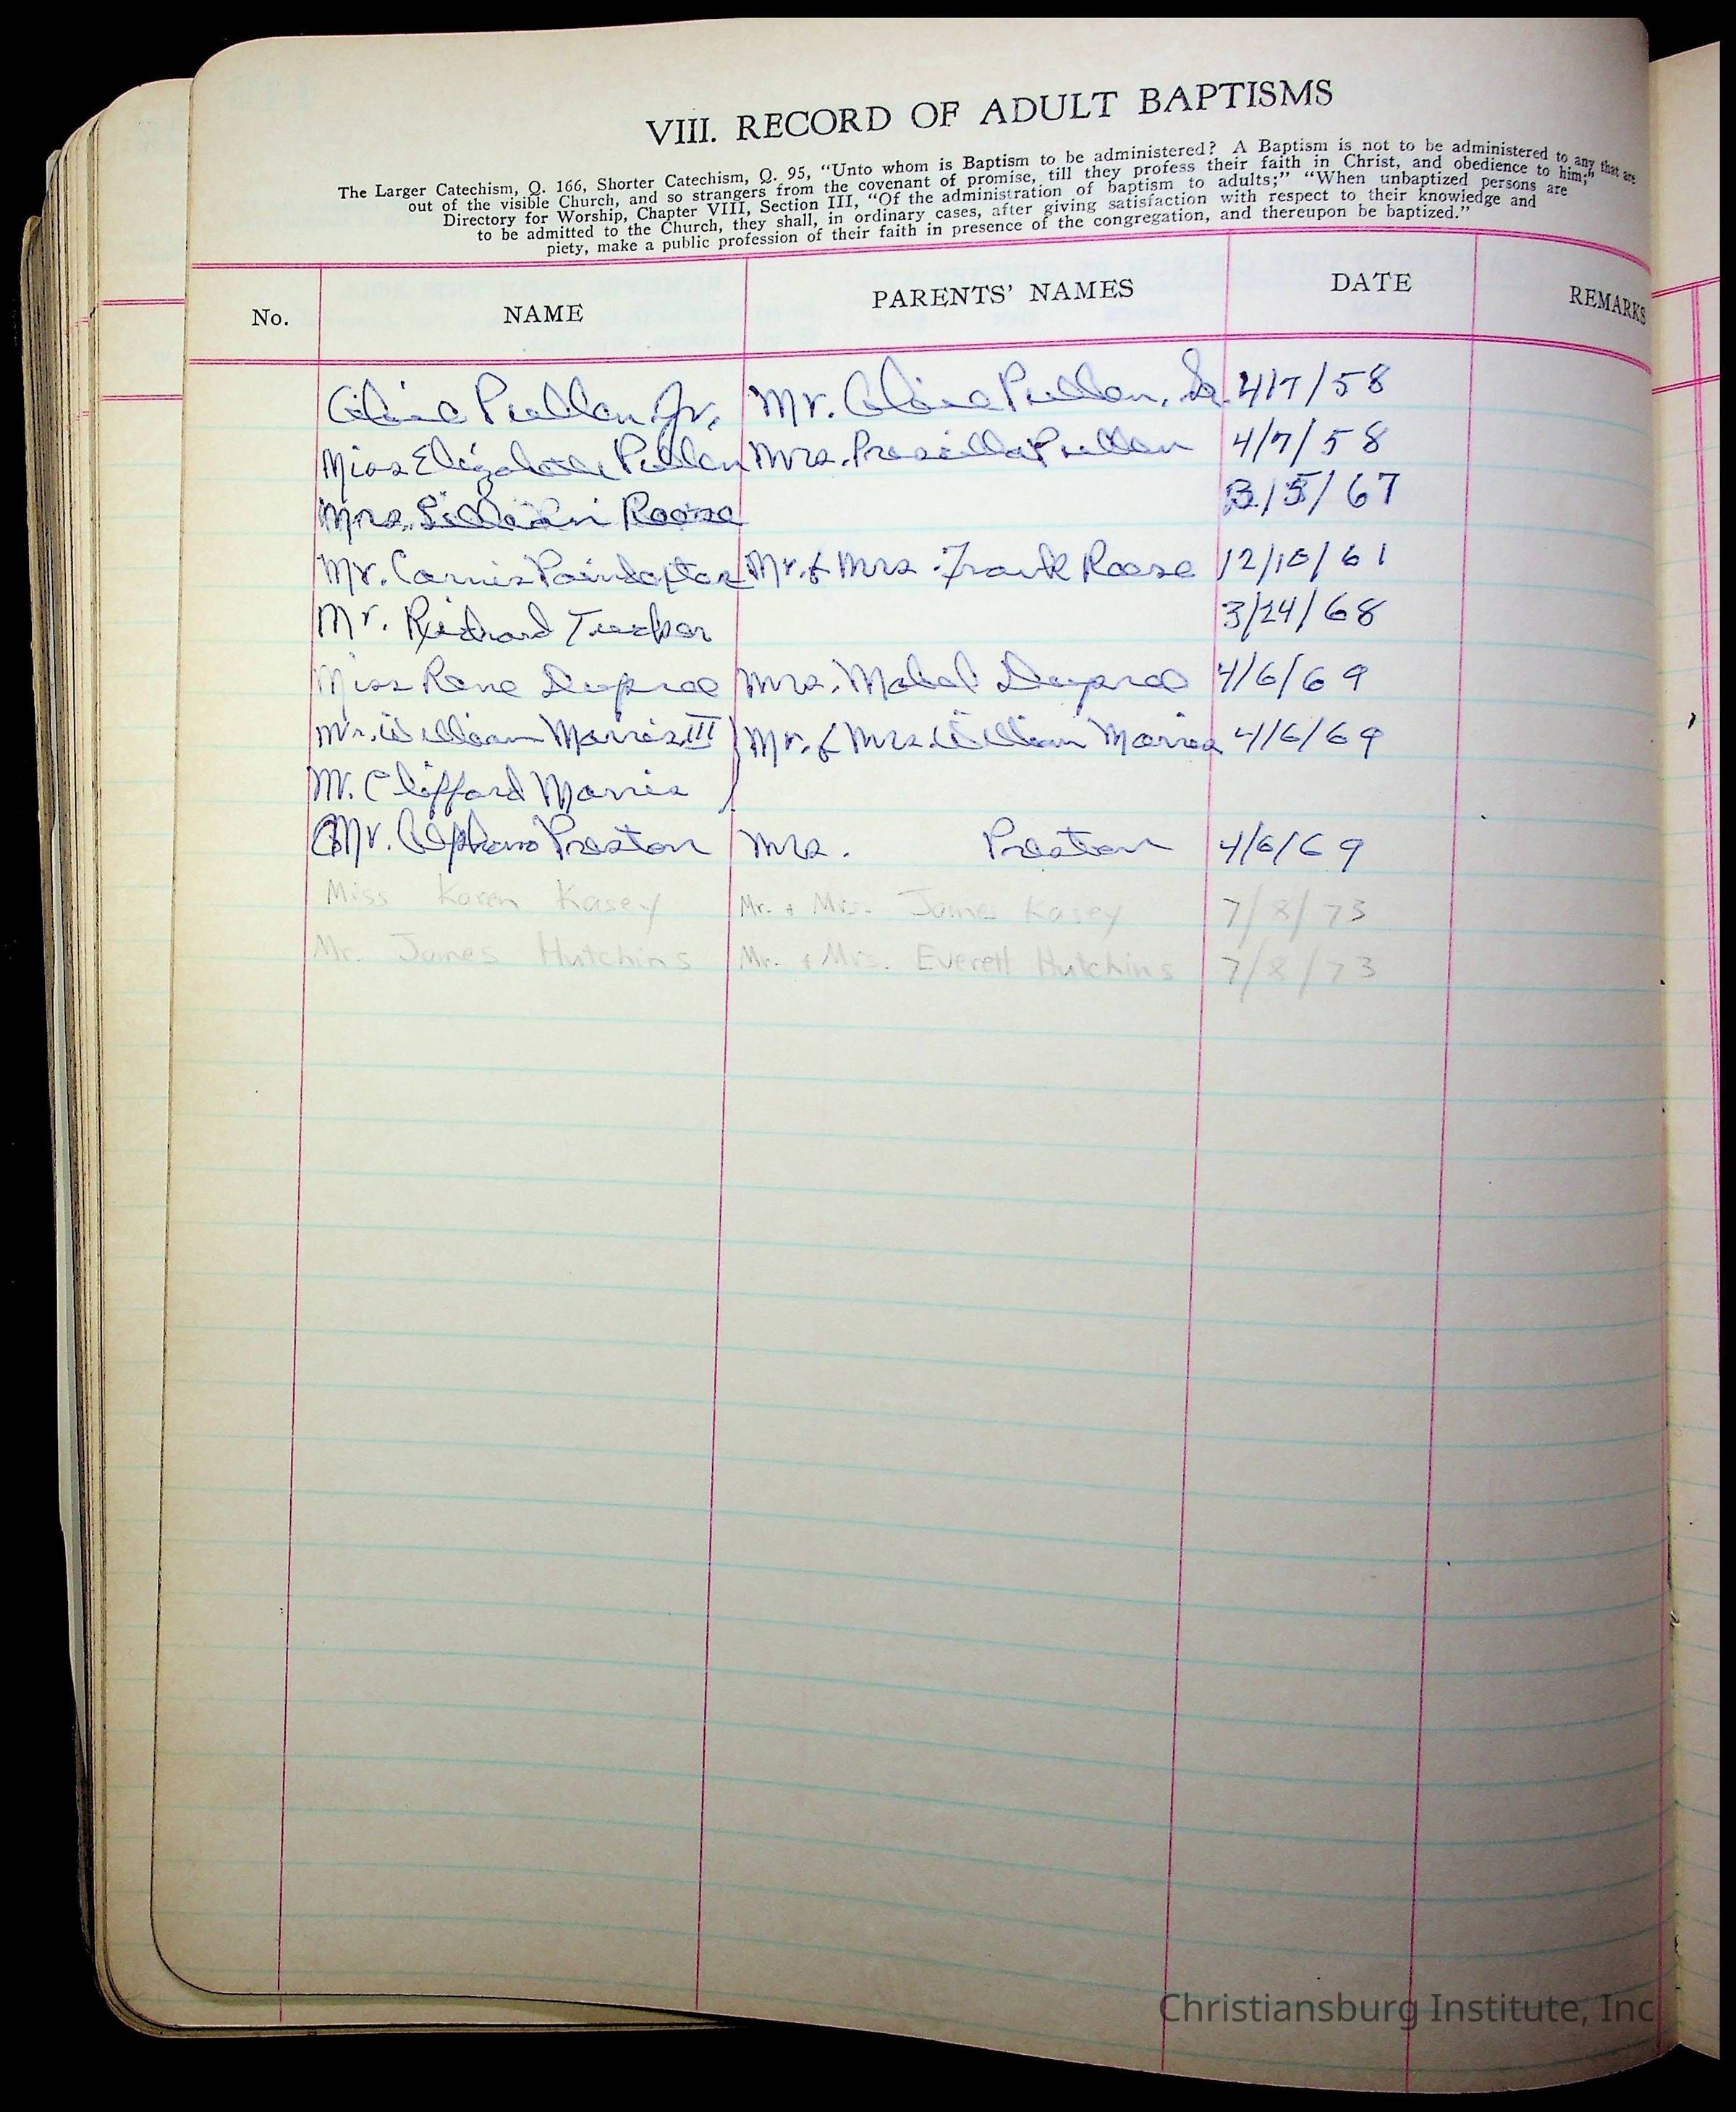 VIII. RECORD OF ADULT BAPTISMS
The Larger Catechism, Q. 166, Shorter Catechism, Q. 95, “Unto whom is Baptism to be administered? A Baptism is not to be administered to any that are
out of the visible Church, and so strangers from the covenant of promise, till they profess their faith in Christ, and obedience to him;”
Directory for Worship, Chapter VIII, Section III, “Of the administration of baptism to adults;” “When unbaptized persons are
to be admitted to the Church, they shall, in ordinary cases, after giving satisfaction with respect to their knowledge and
piety, make a public profession of their faith in presence of the congregation, and thereupon be baptized.”
No. NAME PARENTS’ NAMES DATE REMARKS
Pullen Jr. Mr. Pullen, Sr. 4/7/58
Miss Elizabeth Pullen Mrs. Prescilla Pullen 4/7/58
Mrs. Lillian Reese /5/67
Mr. Mr. & Mrs. Frank Reese 12/10/61
Mr. Richard Tucker 3/24/68
Miss Rene Dupree Mrs. Mabel Dupree 4/6/69
Mr. William Morris III Mr. & Mrs. William Morris 4/6/69
Mr. Clifford Morris
Mr. Preston Mrs. Preston 4/6/69
Miss Karen Kasey Mr. & Mrs. James Kasey 7/8/73
Mr. James Hutchins Mr. & Mrs. Everett Hutchins 7/8/73
Christiansburg Institute, Inc